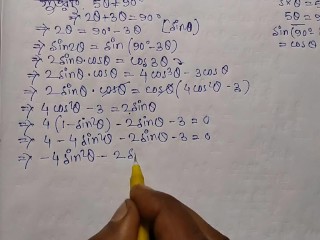 5θ+90°
⇒ 2θ+3θ=90°
⇒ 2θ = 90°-3θ [sinθ]
⇒ sin2θ = sin(90°-3θ)
⇒ 2sinθ·cosθ = cos3θ
⇒ 2sinθ·cosθ = 4cos³θ-3cosθ
⇒ 2sinθ·cosθ = cosθ(4cos²θ-3)
⇒ 4cos²θ-3 = 2sinθ
⇒ 4(1-sin²θ)-2sinθ-3=0
⇒ 4-4sin²θ-2sinθ-3=0
⇒ -4sin²θ-2s
5θ=
sin(90°
=cosθ